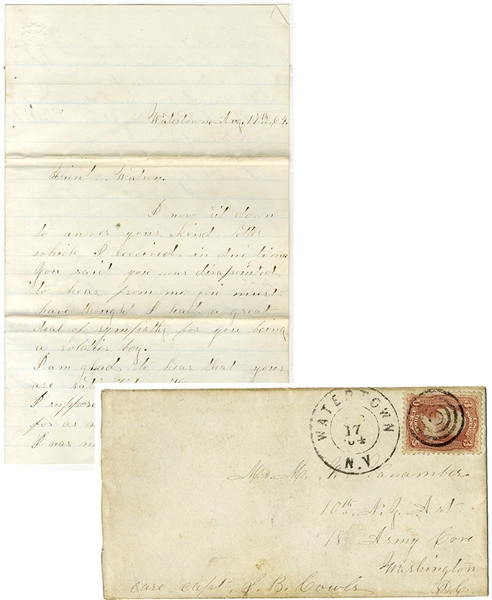 Watertown Aug 17th, 64.
Friend Watson.
I now sit down
to answer your kind letter
which I received in due time
You said you was disapointed
to hear from me you must
have thought I had a great
deal of sympathy for you being
a soldier boy.
I am glad to hear that your
are
I suppose
for as
I was
WATERTOWN
17
64
N.Y.
Mr. M.
10th N.Y. Art
18 Army Core
Washington
D.C.
care Capt. S. B.